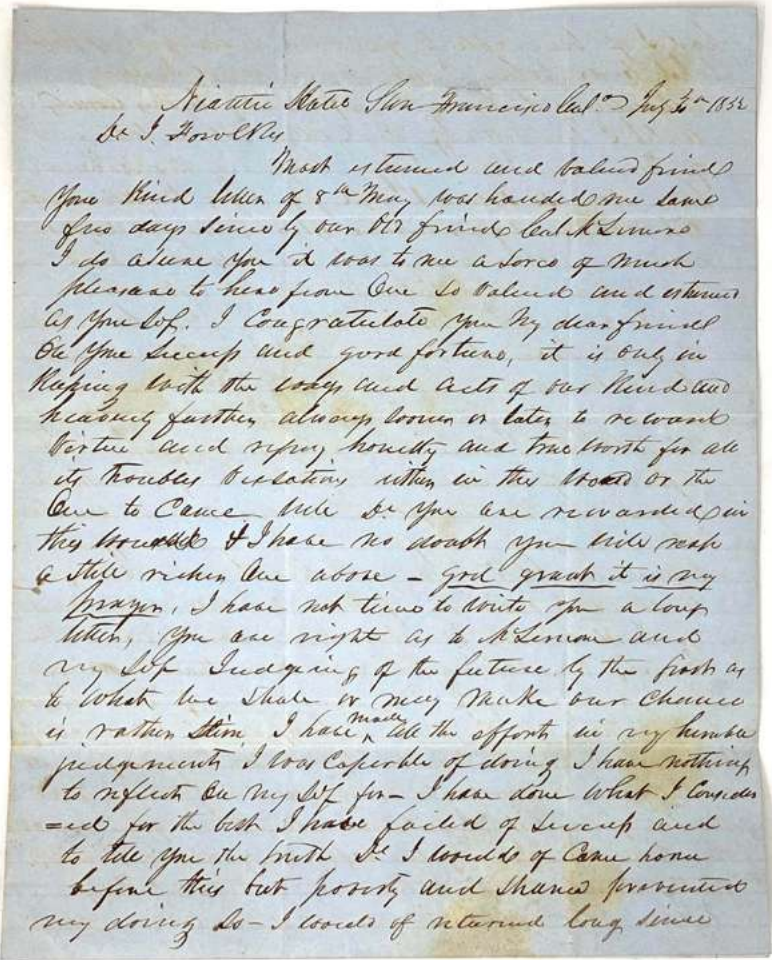 Niantic Hotel San Francisco Cal.ᵃ July 1852
Dr J. Fowlkes
Most esteemed and valued friend
Your Kind letter of 8th May was handed me some
few days since by our Old friend Col McLemore
I do asure you it was to me a sorce of much
pleasure to hear from One so valued and esteemed
as your Self. I Congratulate you My dear friend
On your Success and good fortune, it is only in
Keeping with the ways and acts of our Kind and
heavenly farther always sooner or later to reward
Virtue and repay honesty and true worth for all
its troubles vexsations either in this world or the
One to Come. While Dr you are rewarded in
this world & I have no doubt you will reap
a still richer One above – god grant it is my
prayer, I have not time to write you a long
letter, you are right as to McLemore and
my Self Judgeing of the future by the past as
to what we shall or may make our chance
is rather slim I have made all the efforts in my humble
judgement I was caperble of doing I have nothing
to reflect On my Self for – I have done what I Consider
=ed for the best I have failed of Success and
to tell you the truth Dr I would of Came home
before this but poverty and shame prevented
my doing So – I would of returned long since